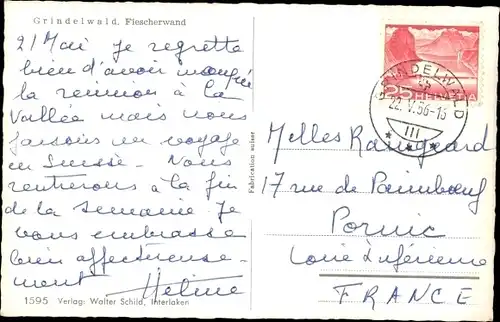 Grindelwald. Fiescherwand
21 Mai je regrette
bien d'avoir manqué
la réunion à la
Vallée mais nous
faisons un voyage
en Suisse. Nous
rentrerons à la fin
de la semaine. Je
vous embrasse
bien affectueuse-
ment Helme
1595 Verlag: Walter Schild, Interlaken
Fabrication suisse
25 HELVETIA
GRINDELWALD
22.V.56-15
III
Melles Rangeard
17 rue de Paimboeuf
Pornic
Loire Inférieure
FRANCE